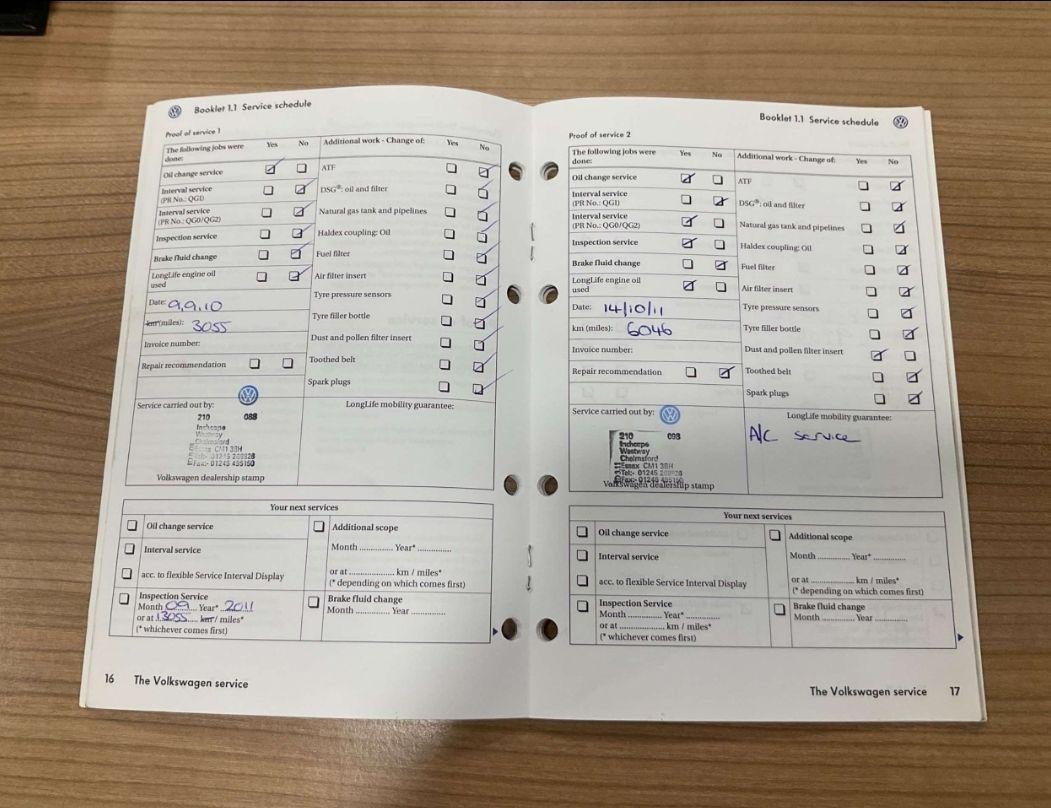 Booklet 1.1 Service schedule
Proof of service 1
The following jobs were done: Yes No
Oil change service
Interval service
(PR No.: QG1)
Interval service
(PR No.: QG0/QG2)
Inspection service
Brake fluid change
LongLife engine oil used
Date: 9.9.10
km (miles): 3055
Invoice number:
Repair recommendation
Additional work - Change of: Yes No
ATF
DSG®: oil and filter
Natural gas tank and pipelines
Haldex coupling: Oil
Fuel filter
Air filter insert
Tyre pressure sensors
Tyre filler bottle
Dust and pollen filter insert
Toothed belt
Spark plugs
Service carried out by:
210 088
Inchcape
Westway
Chelmsford
Essex CM1 3BH
Volkswagen dealership stamp
LongLife mobility guarantee:
Your next services
Oil change service
Interval service
acc. to flexible Service Interval Display
Inspection Service
Month 09 Year* 2011
or at 13055 km / miles*
(* whichever comes first)
Additional scope
Month .............. Year* ..............
or at ...................... km / miles*
(* depending on which comes first)
Brake fluid change
Month .............. Year ..............
16 The Volkswagen service
Booklet 1.1 Service schedule
Proof of service 2
The following jobs were done: Yes No
Oil change service
Interval service
(PR No.: QG1)
Interval service
(PR No.: QG0/QG2)
Inspection service
Brake fluid change
LongLife engine oil used
Date: 14/10/11
km (miles): 6046
Invoice number:
Repair recommendation
Additional work - Change of: Yes No
ATF
DSG®: oil and filter
Natural gas tank and pipelines
Haldex coupling: Oil
Fuel filter
Air filter insert
Tyre pressure sensors
Tyre filler bottle
Dust and pollen filter insert
Toothed belt
Spark plugs
Service carried out by:
210 093
Inchcape
Westway
Chelmsford
Essex CM1 3BH
Volkswagen dealership stamp
LongLife mobility guarantee:
A/C service
Your next services
Oil change service
Interval service
acc. to flexible Service Interval Display
Inspection Service
Month .............. Year* ..............
or at ...................... km / miles*
(* whichever comes first)
Additional scope
Month .............. Year* ..............
or at ...................... km / miles*
(* depending on which comes first)
Brake fluid change
Month .............. Year ..............
The Volkswagen service 17